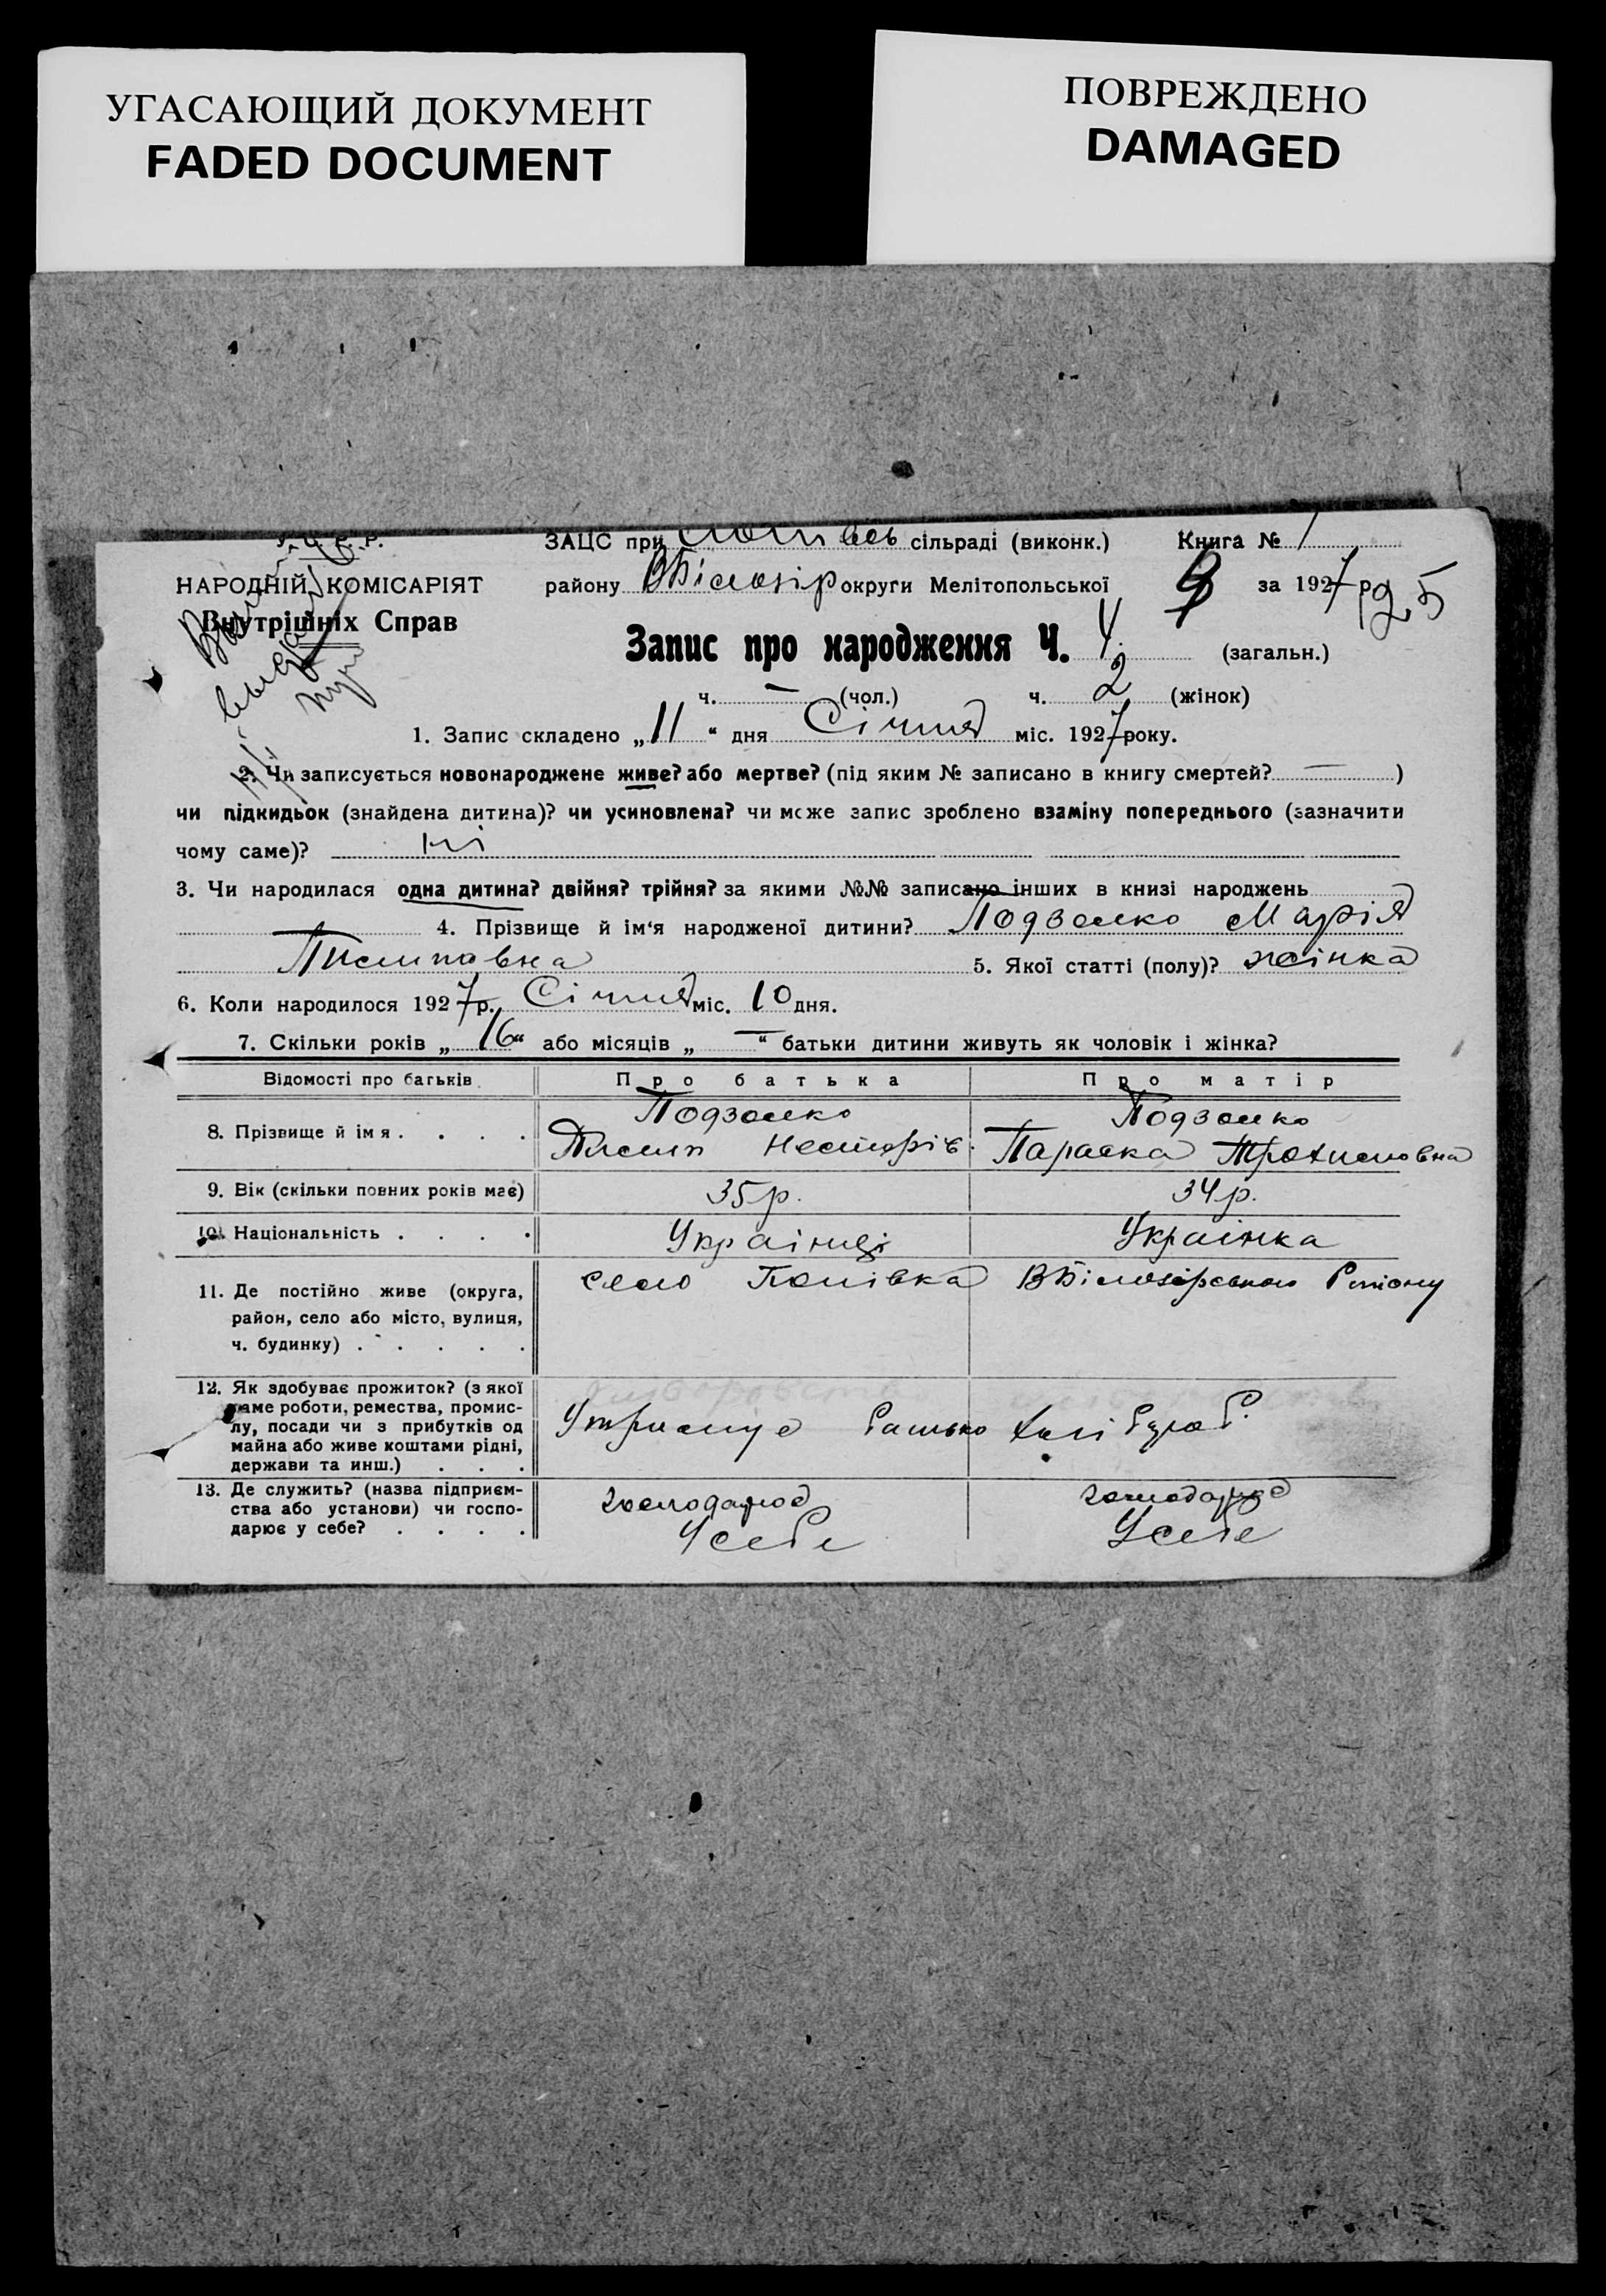 УГАСАЮЩИЙ ДОКУМЕНТ
FADED DOCUMENT
ПОВРЕЖДЕНО
DAMAGED
ЗАЦС при сільраді (виконк.) Книга № 1
НАРОДНІЙ КОМІСАРІЯТ
Внутрішніх Справ
району ВБілозір округи Мелітопольської за 1927 р 25
Запис про народження Ч. 4. (загальн.)
ч. — (чол.) ч. 2 (жінок)
1. Запис складено „11“ дня Січня міс. 1927 року.
2. Чи записується новонароджене живе? або мертве? (під яким № записано в книгу смертей? — )
чи підкидьок (знайдена дитина)? чи усиновлена? чи може запис зроблено взаміну попереднього (зазначити
чому саме)? ні
3. Чи народилася одна дитина? двійня? трійня? за якими №№ записано інших в книзі народжень
4. Прізвище й ім‘я народженої дитини? Марія
5. Якої статті (полу)? жінка
6. Коли народилося 1927 р. Січня міс. 10 дня.
7. Скільки років „16“ або місяців „—“ батьки дитини живуть як чоловік і жінка?
Відомості про батьків Про батька Про матір
8. Прізвище й імя . . . .
Несторів. Параска
9. Вік (скільки повних років має) 35 р. 34 р.
10. Національність . . . . Українці Українка
11. Де постійно живе (округа,
район, село або місто, вулиця,
ч. будинку) . . . . .
село Попівка
12. Як здобуває прожиток? (з якої
саме роботи, ремества, промис-
лу, посади чи з прибутків од
майна або живе коштами рідні,
держави та инш.) . . .
батько
13. Де служить? (назва підприєм-
ства або установи) чи госпо-
дарює у себе? . . . .
Усебе Усебе